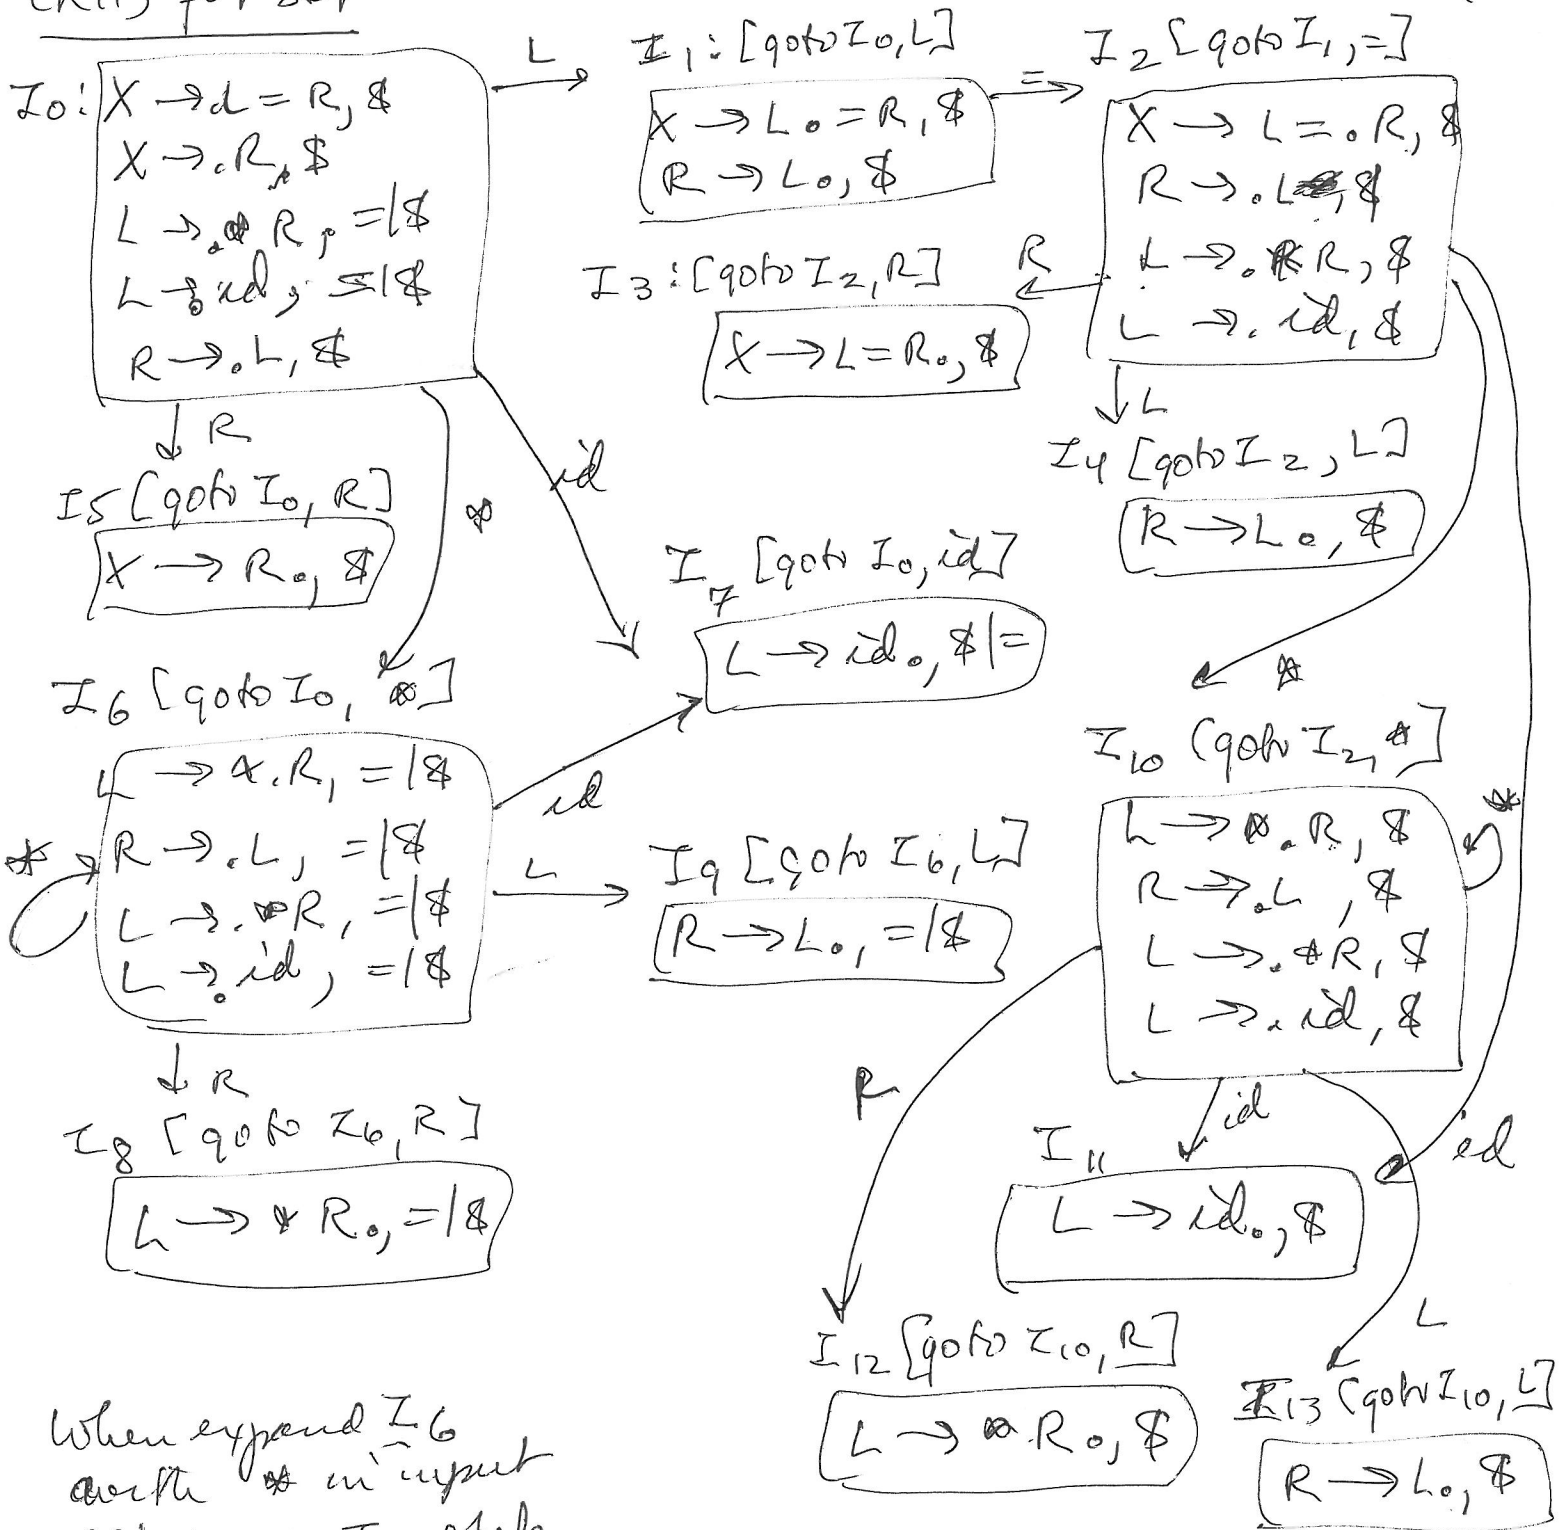 I0:
X → .L = R, $
X → .R, $
L → .* R, = | $
L → .id, = | $
R → .L, $
L
I1: [goto I0, L]
X → L. = R, $
R → L., $
=
I2 [goto I1, =]
X → L = .R, $
R → .L, $
L → .*R, $
L → .id, $
R
I3: [goto I2, R]
X → L = R., $
L
I4 [goto I2, L]
R → L., $
R
I5 [goto I0, R]
X → R., $
*
id
I6 [goto I0, *]
L → *.R, = | $
R → .L, = | $
L → .*R, = | $
L → .id, = | $
*
id
I7 [goto I0, id]
L → id., $ | =
R
I8 [goto I6, R]
L → * R., = | $
L
I9 [goto I6, L]
R → L., = | $
*
I10 [goto I2, *]
L → *.R, $
R → .L, $
L → .*R, $
L → .id, $
*
id
id
I11
L → id., $
R
I12 [goto I10, R]
L → * R., $
L
I13 [goto I10, L]
R → L., $
When expand I6
with * in input